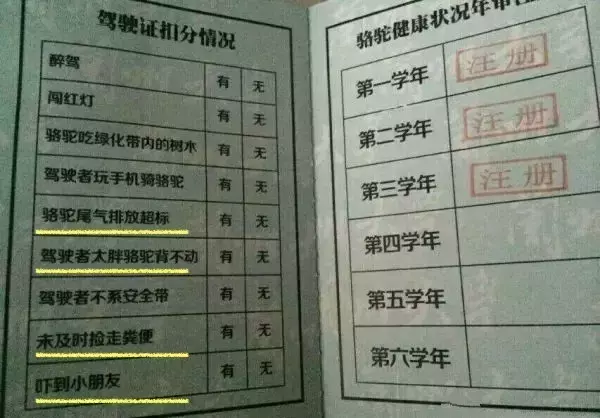 驾驶证扣分情况
醉驾 有 无
闯红灯 有 无
骆驼吃绿化带内的树木 有 无
驾驶者玩手机骑骆驼 有 无
骆驼尾气排放超标 有 无
驾驶者太胖骆驼背不动 有 无
驾驶者不系安全带 有 无
未及时捡走粪便 有 无
吓到小朋友 有 无
骆驼健康状况年审
第一学年 注册
第二学年 注册
第三学年 注册
第四学年
第五学年
第六学年